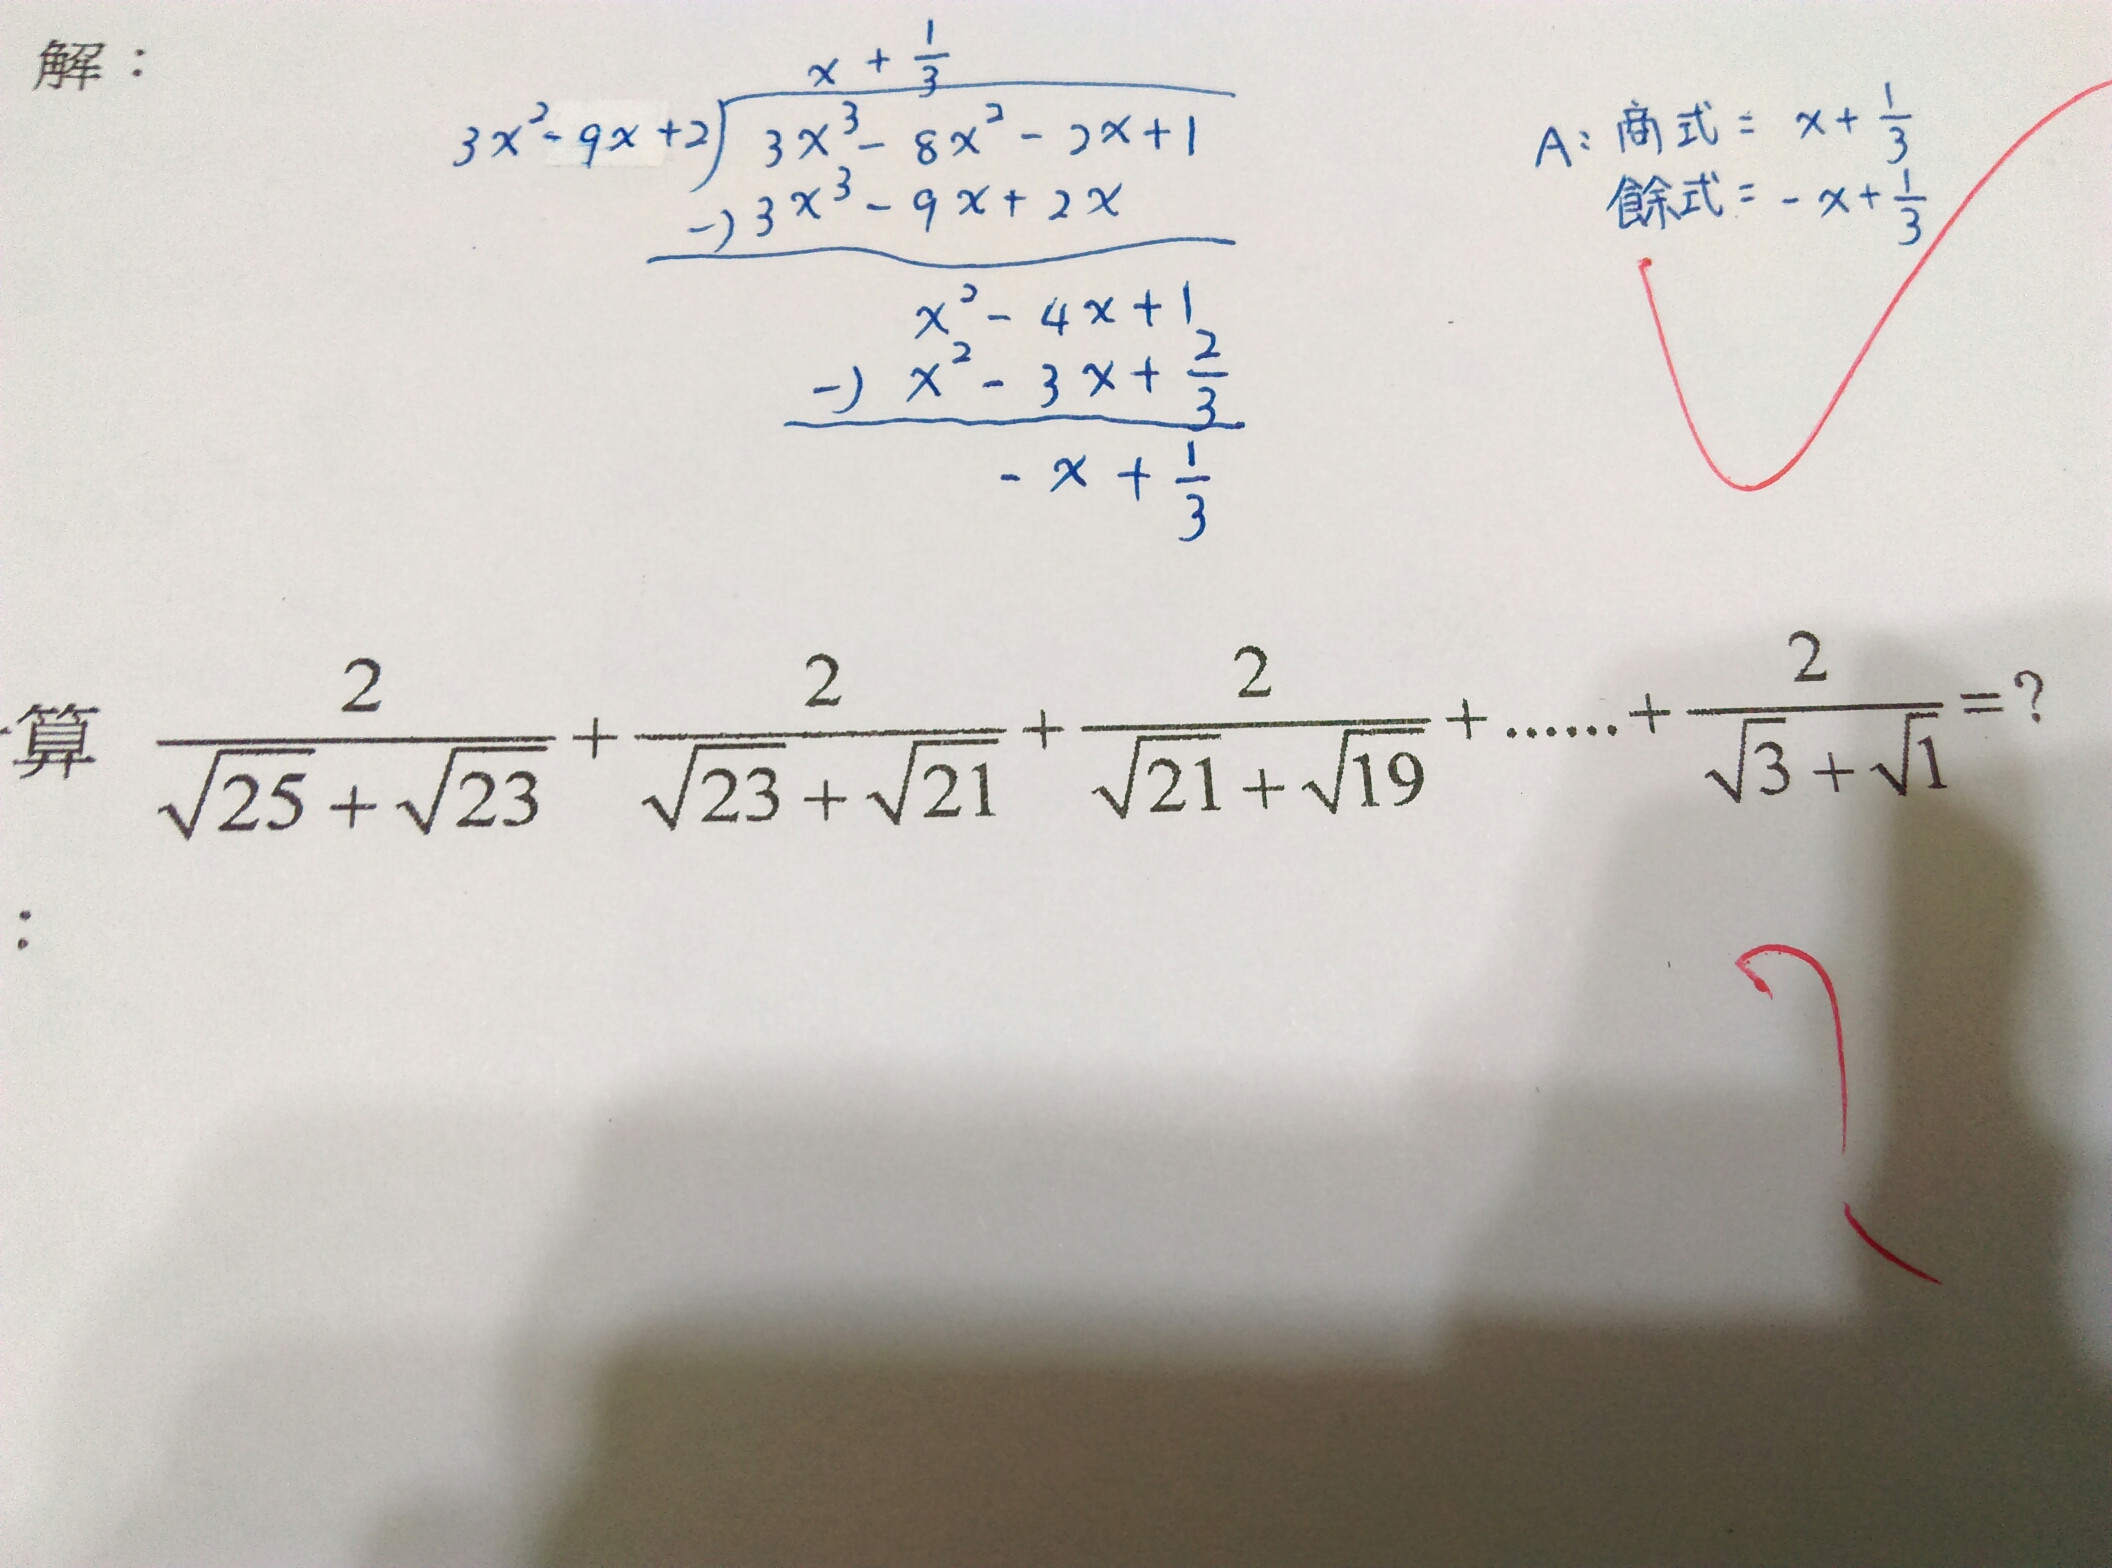 解：
x + 1/3
3x² - 9x + 2 ) 3x³ - 8x² - 2x + 1
-) 3x³ - 9x + 2x
x² - 4x + 1
-) x² - 3x + 2/3
- x + 1/3
A: 商式 = x + 1/3
餘式 = - x + 1/3
算 2/(√25 + √23) + 2/(√23 + √21) + 2/(√21 + √19) + ...... + 2/(√3 + √1) = ?
: